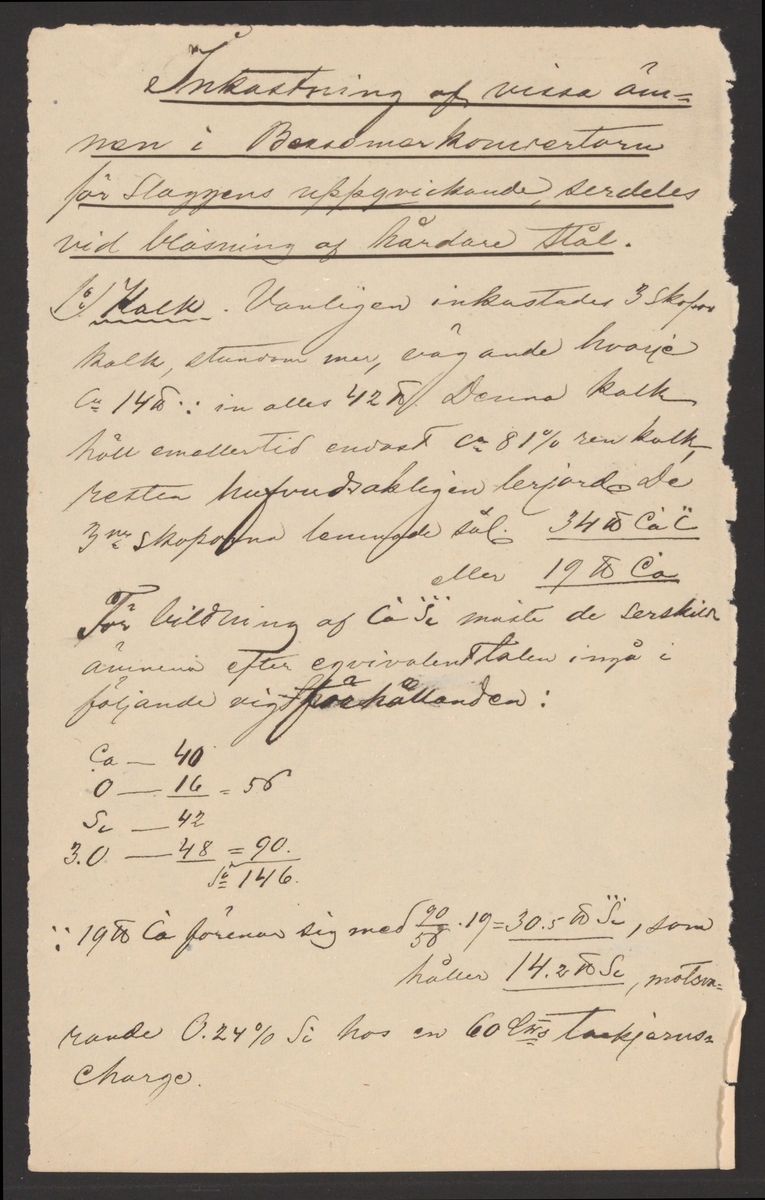 Inkastning af vissa äm=
nen i Bessemerkonvertorn
för slaggens uppqvickande, serdeles
vid blåsning af hårdare stål.
1º) Kalk. Vanligen inkastades 3 skopor
kalk, stundom mer, vägande hvarje
ca 14 ℔ ∵ in alles 42 ℔. Denna kalk
höll emellertid endast ca 81% ren kalk,
resten hufvudsakligen lerjord. De
3ne skoporna lemnade sål. 34 ℔ Ċa C̈
eller 19 ℔ Ċa
För bildning af Ċa S⃛i måste de serskilda
ämnena efter eqvivalenttalen ingå i
följande vigtförhållanden:
Ca — 40
O — 16 = 56
Si — 42
3.O — 48 = 90.
Sa 146.
∵ 19 ℔ Ċa förenar sig med 90/56 · 19 = 30.5 ℔ S⃛i, som
håller 14.2 ℔ Si, motsva=
rande 0.24% Si hos en 60 Ctrs tackjerns=
charge.